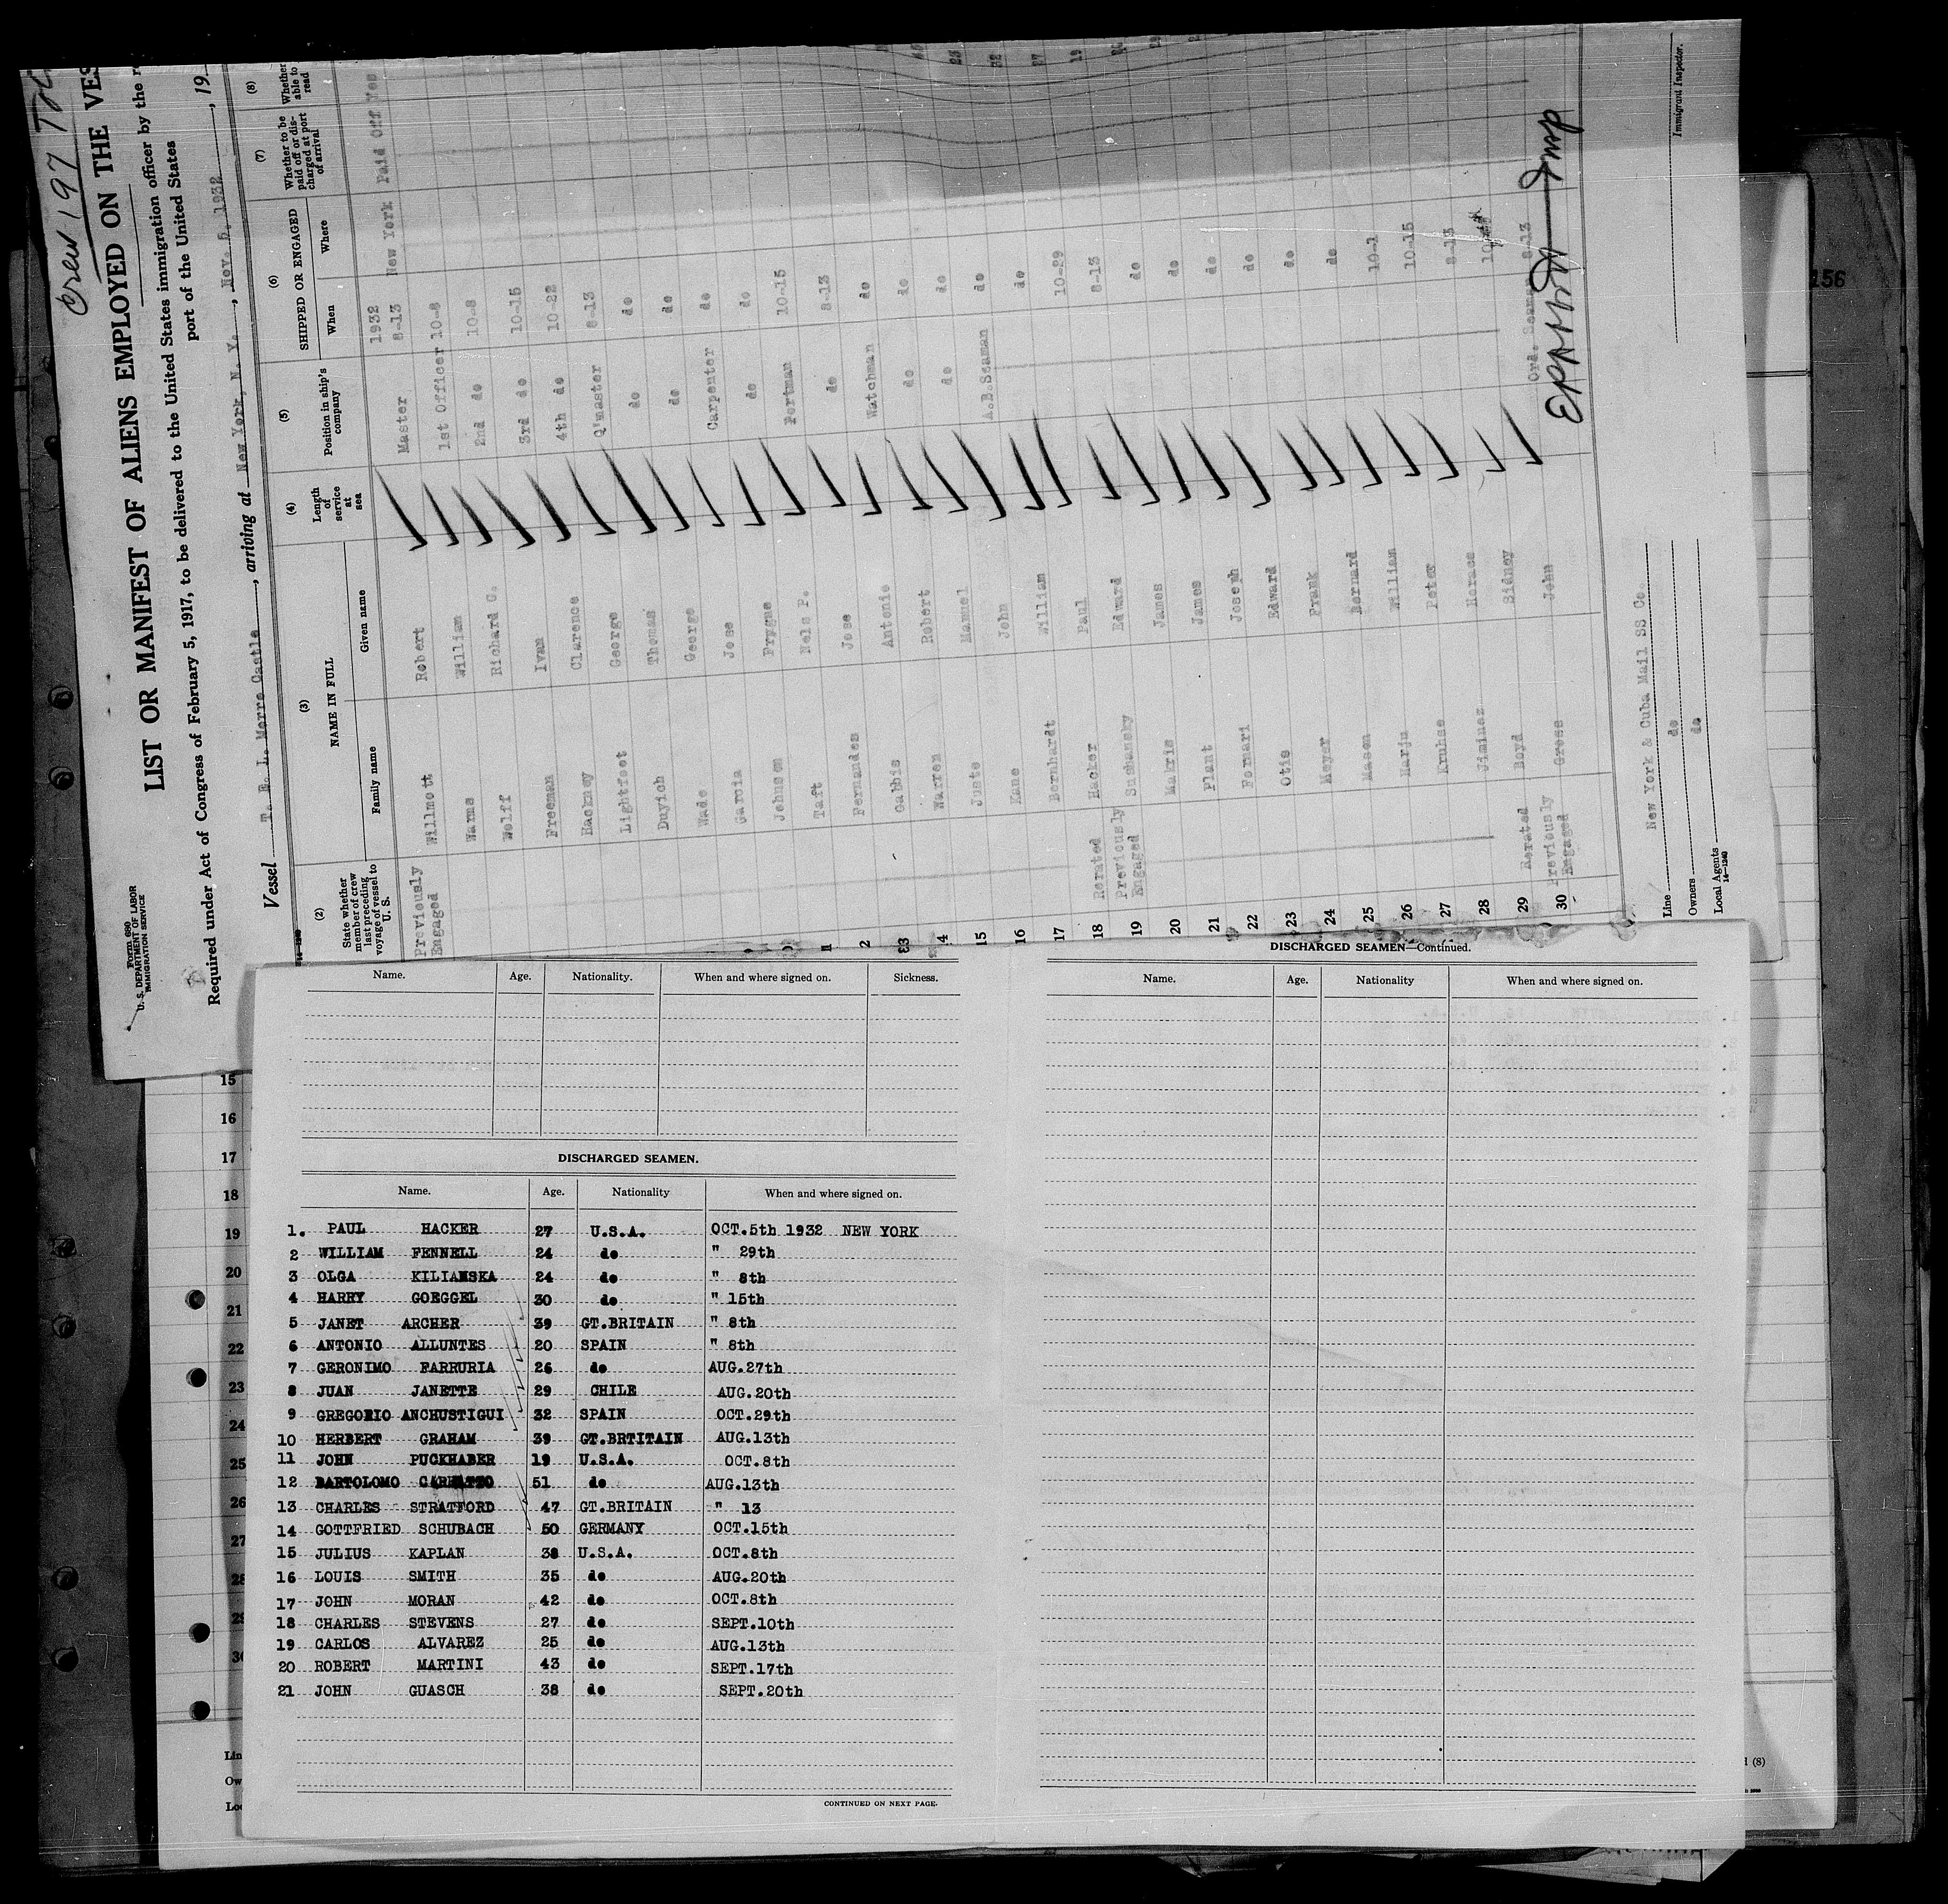 Crew 197
LIST OR MANIFEST OF ALIENS EMPLOYED ON THE VES
Required under Act of Congress of February 5, 1917, to be delivered to the United States immigration officer by the
port of the United States
Form 680
U. S. DEPARTMENT OF LABOR
IMMIGRATION SERVICE
Vessel T. E. L. Morro Castle, arriving at New York, N. Y., Nov. 5, 1932, 19
(2) (3) (4) (5) (6) (7) (8)
State whether member of crew last preceding voyage of vessel to U. S.
NAME IN FULL
Family name Given name
Length of service at sea
Position in ship's company
SHIPPED OR ENGAGED
When Where
Whether to be paid off or discharged at port of arrival
Whether able to read
1932
Previously Engaged Willmott Robert Master 8-13 New York Paid Off Yes
Warms William 1st Officer 10-8
Wolff Richard C. 2nd do 10-8
Freeman Ivan 3rd do 10-15
Hackney Clarence 4th do 10-22
Lightfoot George Q'master 8-13
Duyich Thomas do do
Wade George do do
Garcia Jose Carpenter do
Johnson do do
Taft Nels P. Portman 10-15
Fernandes Jose do 8-13
Gabbis Antonio Watchman do
Warren Robert do do
15 Juste Manuel do do
16 Kane John A.B.Seaman do
17 Bernhardt William do
18 Rerated Hacker Paul 10-29
19 Previously Engaged Sushansky Edward 8-13
20 Makris James do
21 Plant James do
22 Fornari Joseph do
23 Otis Edward do
24 Meyer Frank do
25 Mason Bernard do
26 Harju William 10-1
27 Kruhse Peter 10-15
28 Jiminez Horace 8-13
29 Rerated Boyd Sidney
30 Previously Engaged Gross John Ord. Seaman 8-13
Line New York & Cuba Mail SS Co.
Owners do
Local Agents do
Immigrant Inspector.
156
Name. Age. Nationality. When and where signed on. Sickness.
DISCHARGED SEAMEN.
Name. Age. Nationality When and where signed on.
1. PAUL HACKER 27 U.S.A. OCT.5th 1932 NEW YORK
2 WILLIAM FENNELL 24 do " 29th
3 OLGA KILIANSKA 24 do " 8th
4 HARRY GOEGGEL 30 do " 15th
5 JANET ARCHER 39 GT.BRITAIN " 8th
6 ANTONIO ALLUNTES 20 SPAIN " 8th
7 GERONIMO FARRURIA 26 do AUG.27th
8 JUAN JANETTE 29 CHILE AUG.20th
9 GREGORIO ANCHUSTIGUI 32 SPAIN OCT.29th
10 HERBERT GRAHAM 39 GT.BRTITAIN AUG.13th
11 JOHN PUCKHABER 19 U.S.A. OCT.8th
12 BARTOLOMO 51 do AUG.13th
13 CHARLES STRATFORD 47 GT.BRITAIN " 13
14 GOTTFRIED SCHUBACH 50 GERMANY OCT.15th
15 JULIUS KAPLAN 38 U.S.A. OCT.8th
16 LOUIS SMITH 35 do AUG.20th
17 JOHN MORAN 42 do OCT.8th
18 CHARLES STEVENS 27 do SEPT.10th
19 CARLOS ALVAREZ 25 do AUG.13th
20 ROBERT MARTINI 43 do SEPT.17th
21 JOHN GUASCH 38 do SEPT.20th
CONTINUED ON NEXT PAGE.
DISCHARGED SEAMEN—Continued.
Name. Age. Nationality When and where signed on.
15
16
17
18
19
20
21
22
23
24
25
26
27
28
29
30